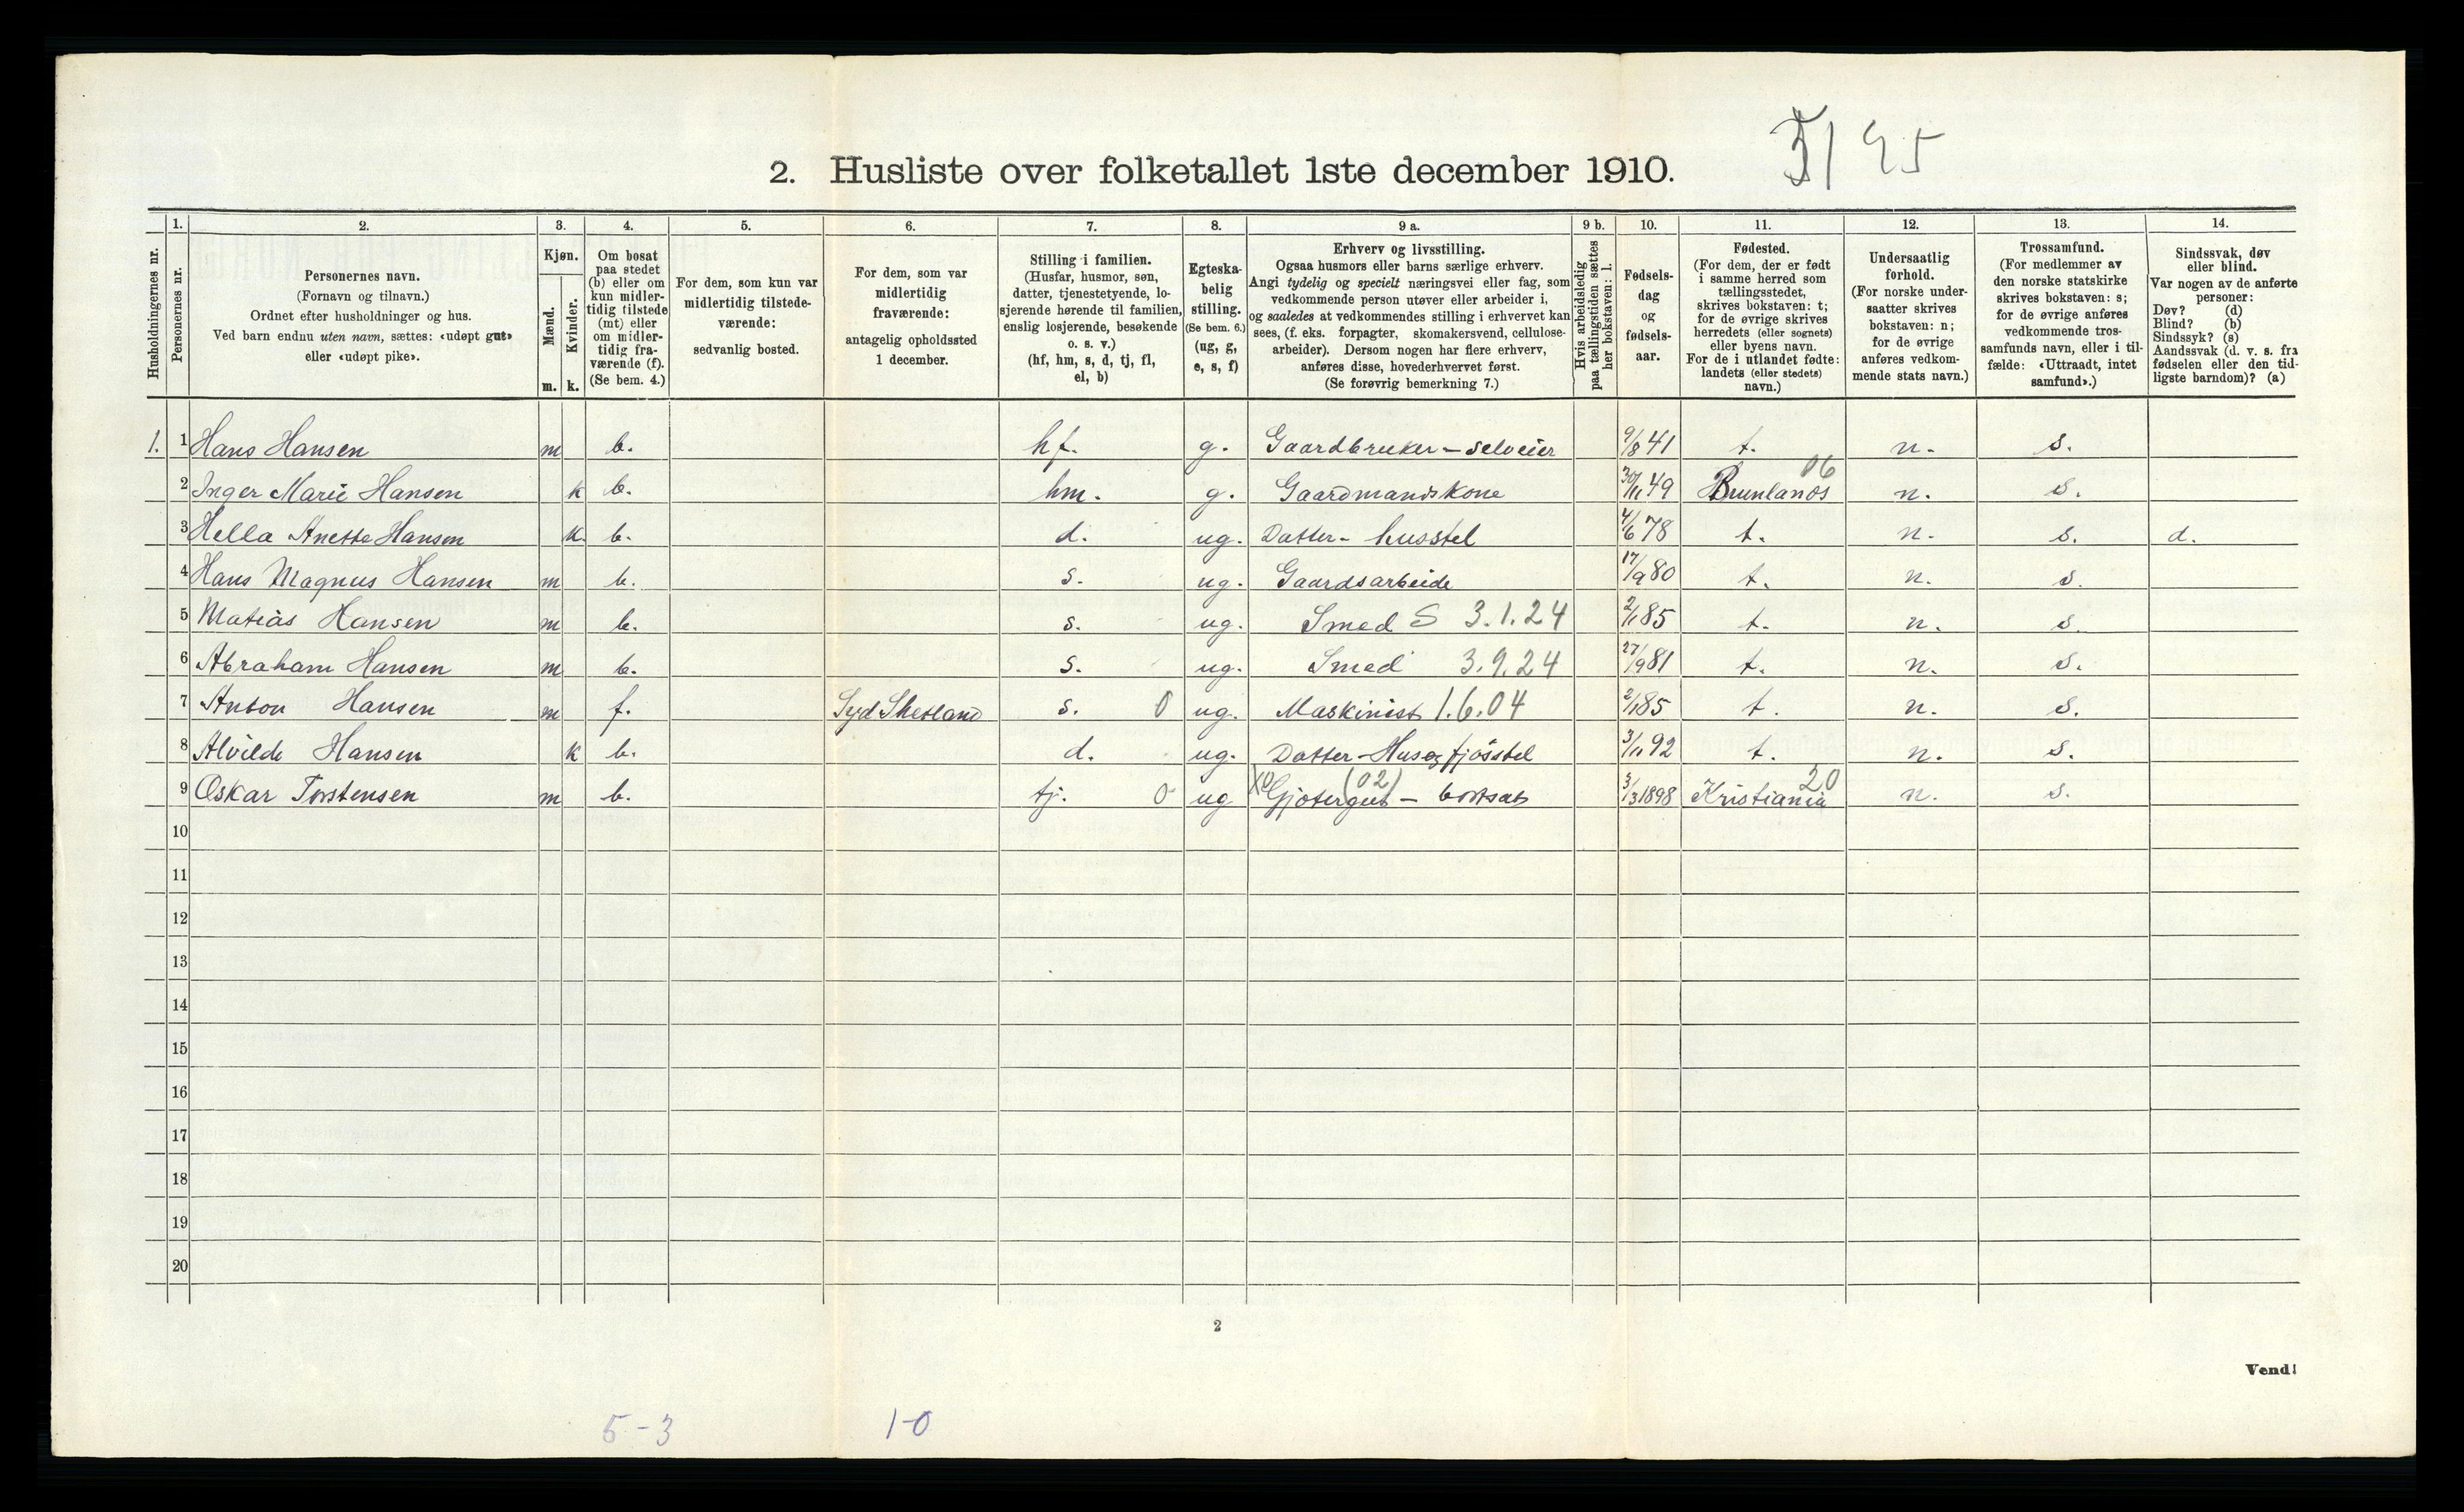 5195
2. Husliste over folketallet 1ste december 1910.
Husholdningernes nr.
1. Personernes nr.
2. Personernes navn.
(Fornavn og tilnavn.)
Ordnet efter husholdninger og hus.
Ved barn endnu uten navn, sættes: «udøpt gut»
eller «udøpt pike».
3. Kjøn.
Mænd. Kvinder.
m. k.
4. Om bosat
paa stedet
(b) eller om
kun midler-
tidig tilstede
(mt) eller
om midler-
tidig fra-
værende (f).
(Se bem. 4.)
5. For dem, som kun var
midlertidig tilstede-
værende:
sedvanlig bosted.
6. For dem, som var
midlertidig
fraværende:
antagelig opholdssted
1 december.
7. Stilling i familien.
(Husfar, husmor, søn,
datter, tjenestetyende, lo-
sjerende hørende til familien,
enslig losjerende, besøkende
o. s. v.)
(hf, hm, s, d, tj, fl,
el, b)
8. Egteska-
belig
stilling.
(Se bem. 6.)
(ug, g,
e, s, f)
9 a. Erhverv og livsstilling.
Ogsaa husmors eller barns særlige erhverv.
Angi tydelig og specielt næringsvei eller fag, som
vedkommende person utøver eller arbeider i,
og saaledes at vedkommendes stilling i erhvervet kan
sees, (f. eks. forpagter, skomakersvend, cellulose-
arbeider). Dersom nogen har flere erhverv,
anføres disse, hovederhvervet først.
(Se forøvrig bemerkning 7.)
9 b. Hvis arbeidsledig
paa tællingstiden sættes
her bokstaven: l.
10. Fødsels-
dag
og
fødsels-
aar.
11. Fødested.
(For dem, der er født
i samme herred som
tællingsstedet,
skrives bokstaven: t;
for de øvrige skrives
herredets (eller sognets)
eller byens navn.
For de i utlandet fødte:
landets (eller stedets)
navn.)
12. Undersaatlig
forhold.
(For norske under-
saatter skrives
bokstaven: n;
for de øvrige
anføres vedkom-
mende stats navn.)
13. Trossamfund.
(For medlemmer av
den norske statskirke
skrives bokstaven: s;
for de øvrige anføres
vedkommende tros-
samfunds navn, eller i til-
fælde: «Uttraadt, intet
samfund».)
14. Sindssvak, døv
eller blind.
Var nogen av de anførte
personer:
Døv? (d)
Blind? (b)
Sindssyk? (s)
Aandssvak (d. v. s. fra
fødselen eller den tid-
ligste barndom)? (a)
1. 1 Hans Hansen m b. hf. g. Gaardbruker - selveier 9/8 41 t. n. s.
2 Inger Marie Hansen k b. hm. g. Gaardmandskone 30/11 49 Brunlanes 06 n. s.
3 Hella Anette Hansen k. b. d. ug. Datter - husstel 4/6 78 t. n. s. d.
4 Hans Magnus Hansen m b. s. ug. Gaardsarbeide 17/9 80 t. n. s.
5 Matias Hansen m b. s. ug. Smed S 3.1.24 2/1 85 t. n. s.
6 Abraham Hansen m b. s. ug. Smed 3.9.24 27/9 81 t. n. s.
7 Anton Hansen m f. Syd Shetland s. 0 ug. Maskinist 1.6.04 2/1 85 t. n. s.
8 Alvilde Hansen k b. d. ug. Datter - Hus og fjøsstel 3/11 92 t. n. s.
9 Oskar Torstensen m b. tj. 0 ug Gjetergut - bortsat (02) 3/3 1898 Kristiania 20 n. s.
10
11
12
13
14
15
16
17
18
19
20
2
Vend!
5-3 1-0